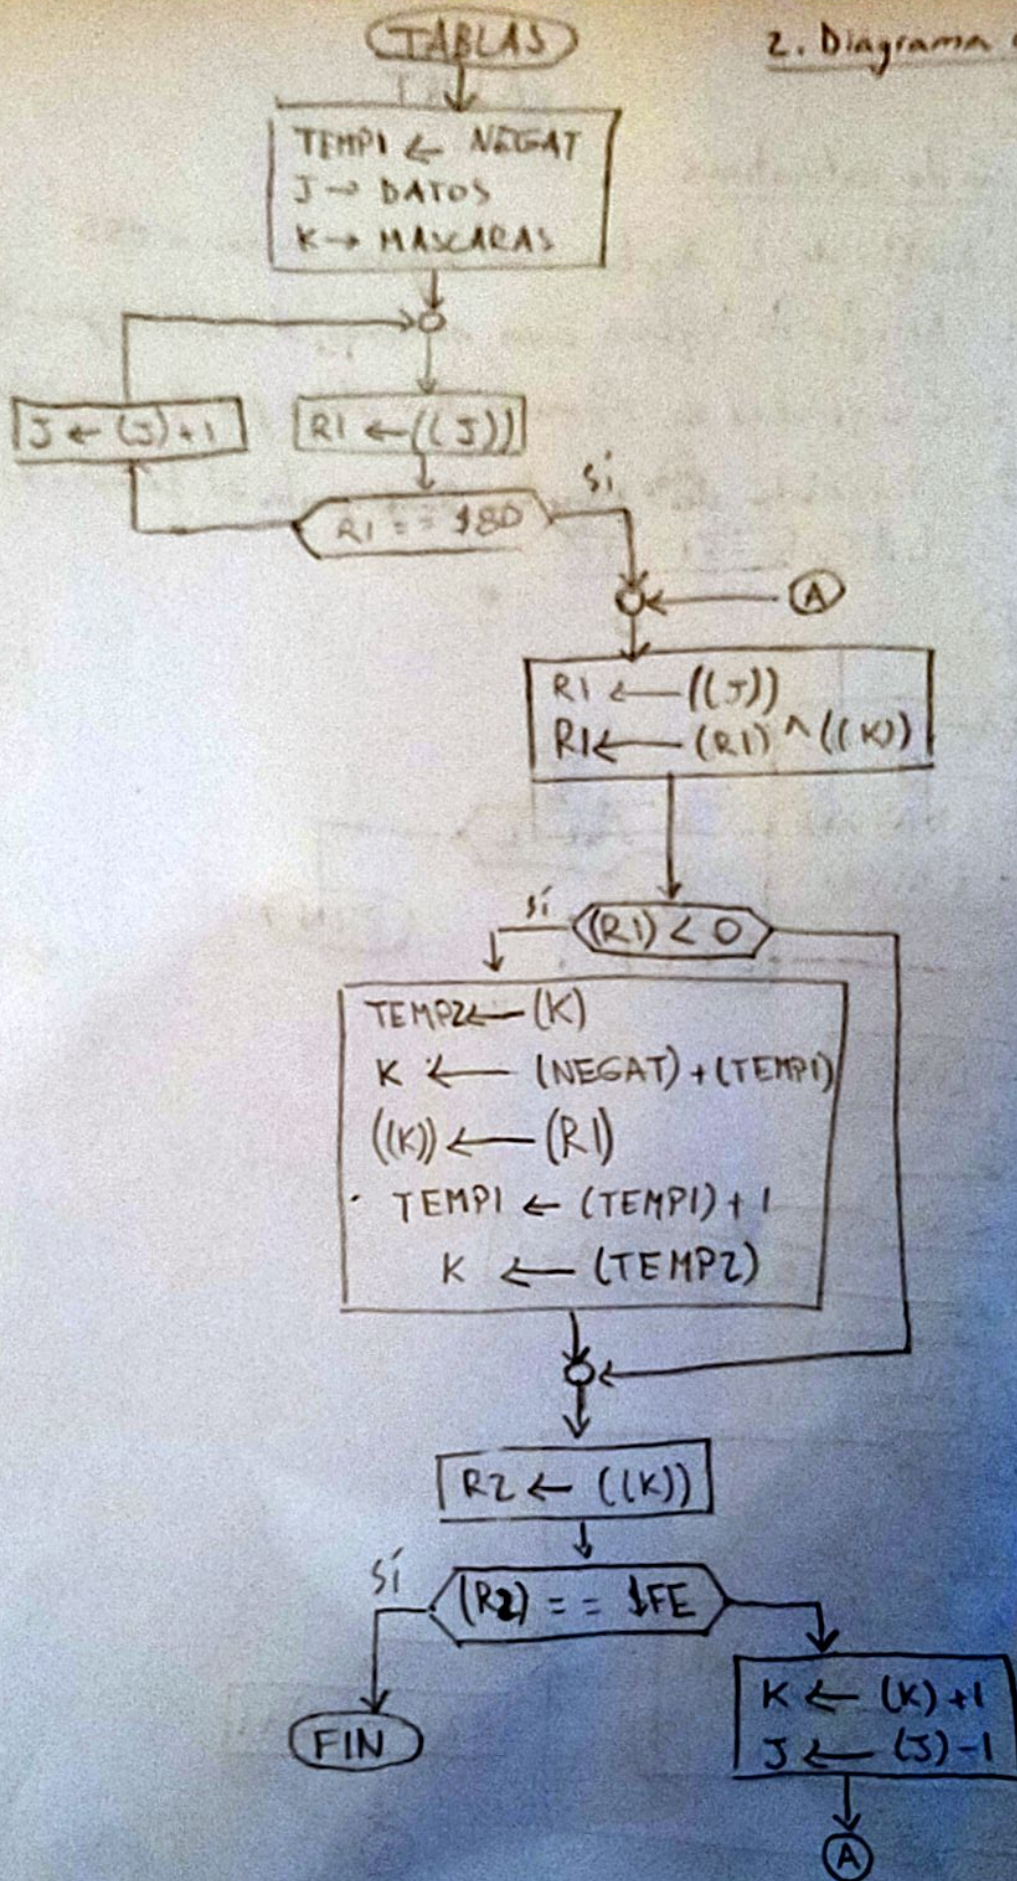 TABLAS
2. Diagrama
TEMP1 ← NEGAT
J → DATOS
K → MASCARAS
J ← (J)+1
R1 ← ((J))
R1 == $80
sí
A
R1 ← ((J))
R1 ← (R1) ^ ((K))
sí
(R1) < 0
TEMP2 ← (K)
K ← (NEGAT)+(TEMP1)
((K)) ← (R1)
TEMP1 ← (TEMP1)+1
K ← (TEMP2)
R2 ← ((K))
SÍ
(R2) == $FE
FIN
K ← (K)+1
J ← (J)-1
A